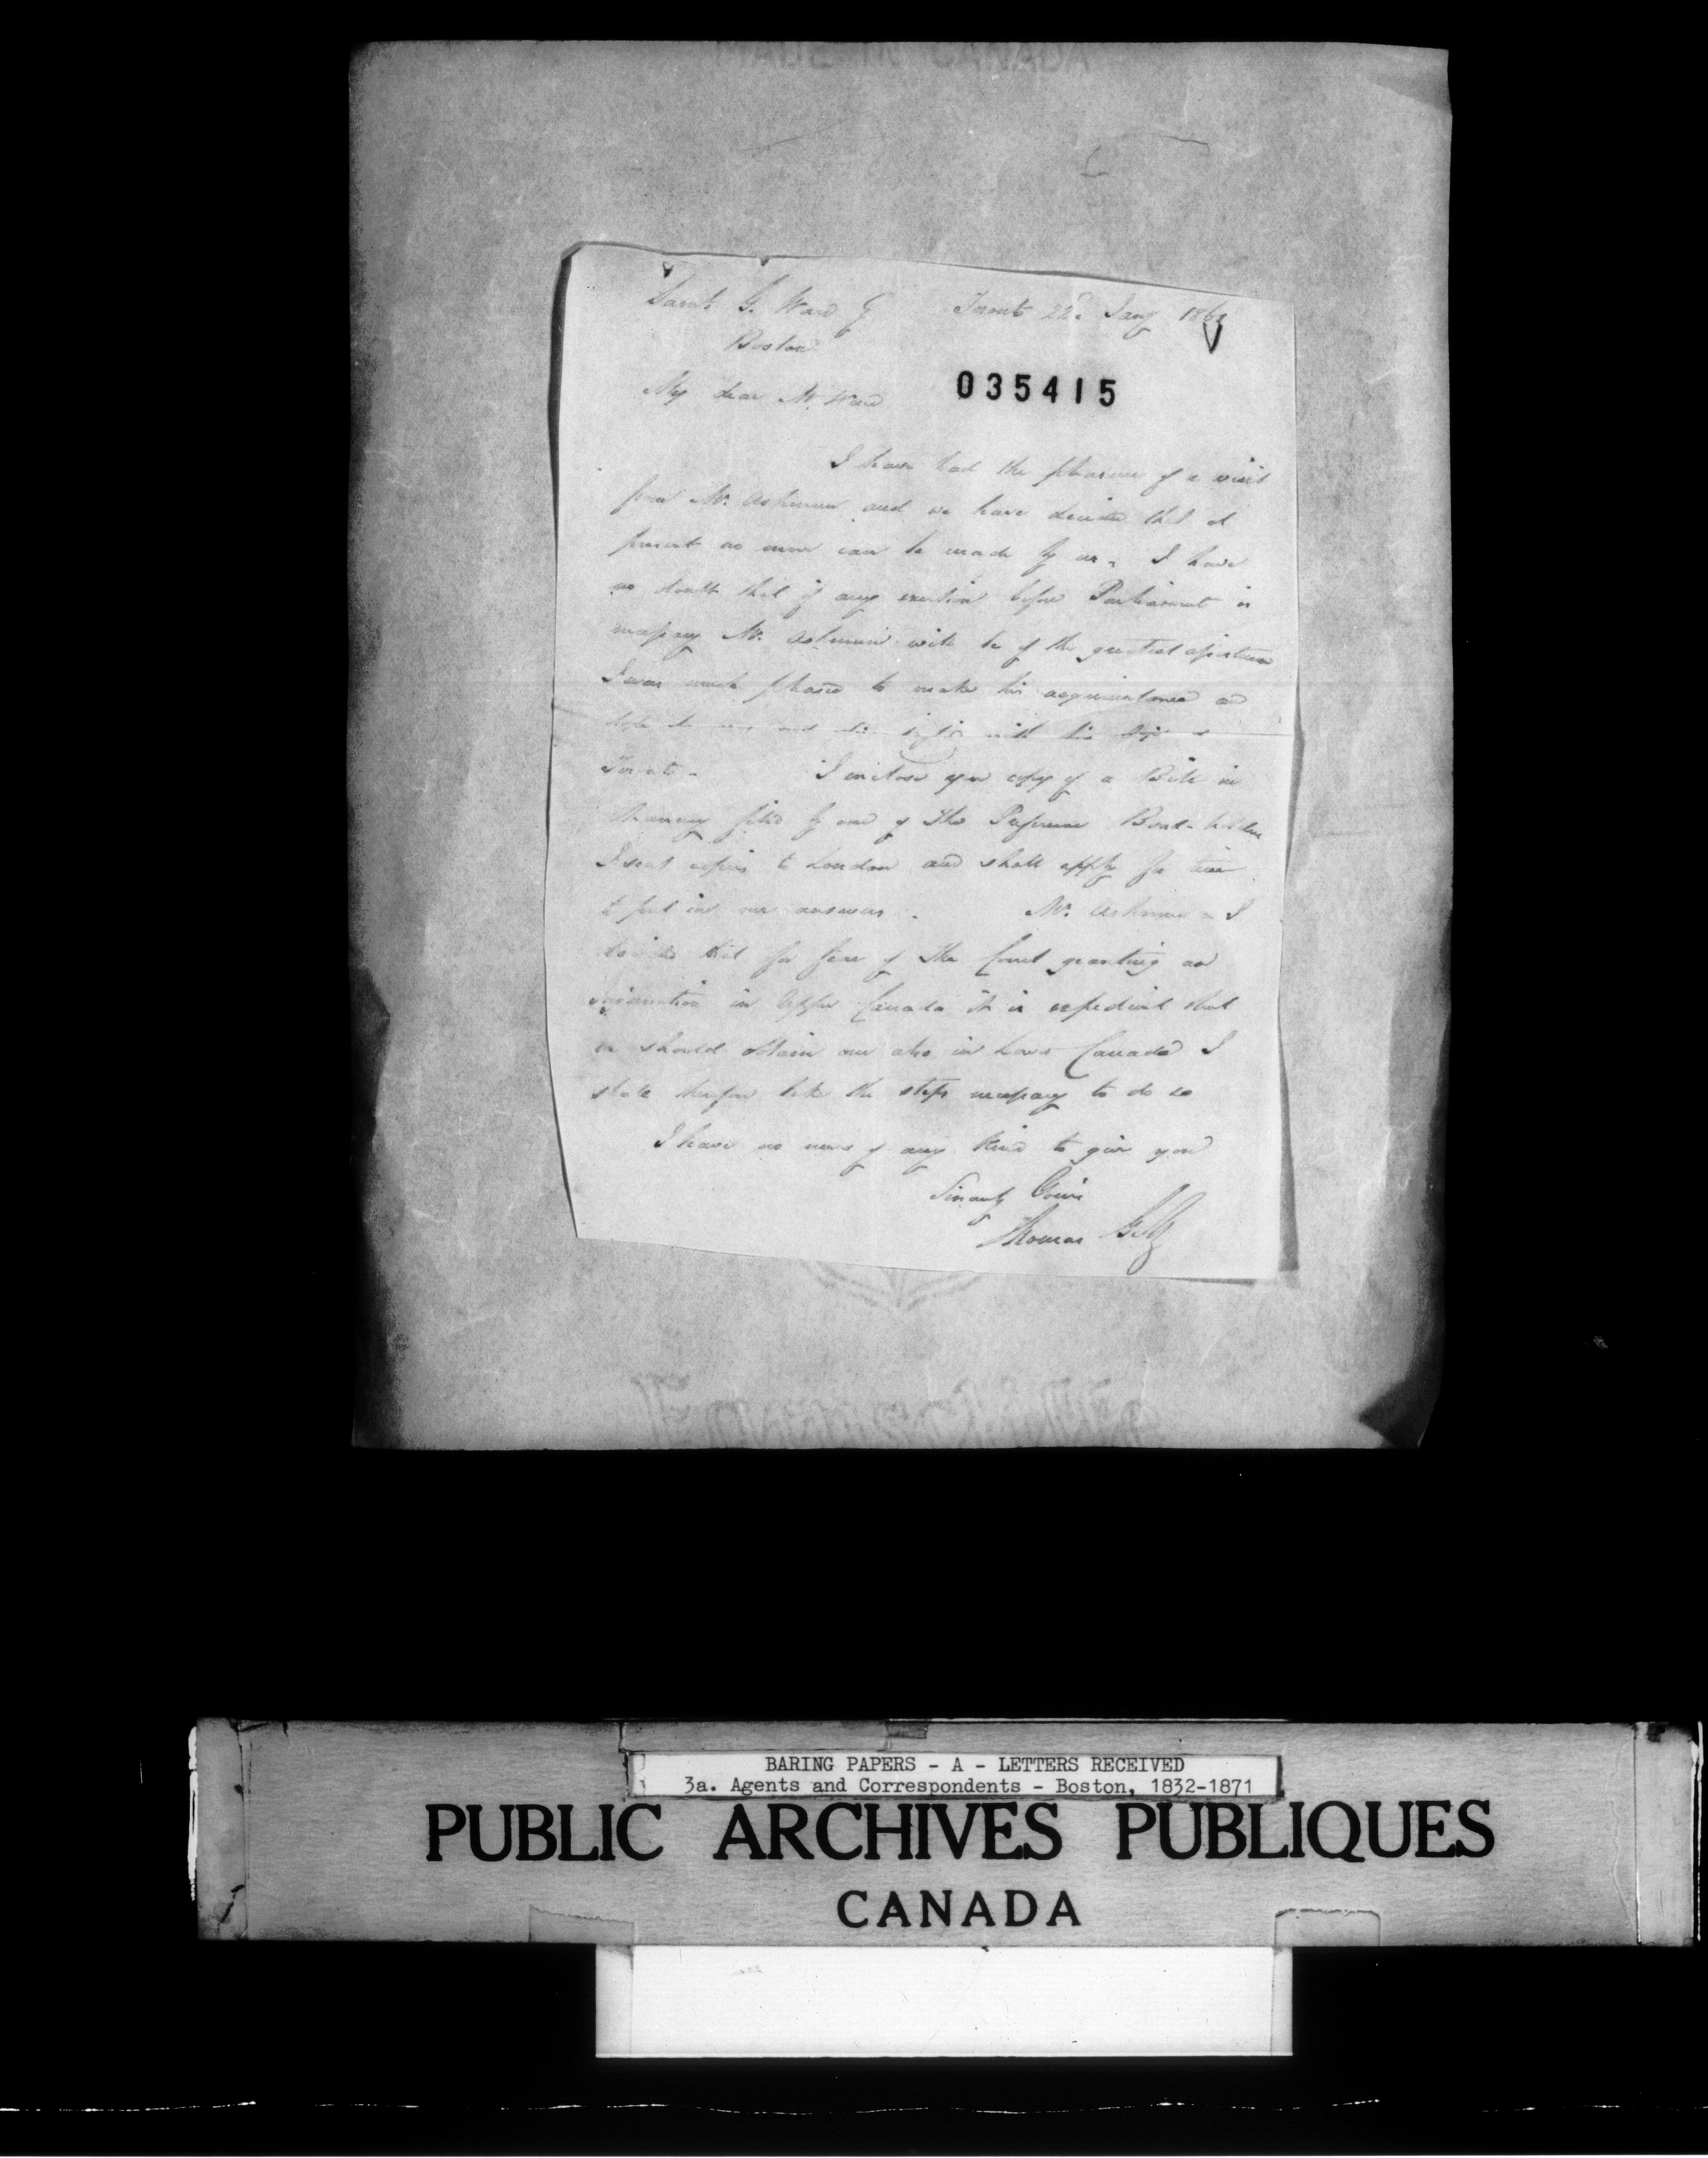 Saml G. Ward Esq Toronto 22d. Jany 186
Boston
My dear Mr. Ward
035415
I have had the pleasure of a visit
from Mr. Ashmun and we have decided that at
present no move can be made by us. I have
no doubt that if any exertion before Parliament is
necessary Mr. Ashmun will be of the greatest
I was much pleased to make his acquaintance and
with his
Toronto - I inclose you copy of a Bill in
Chancery filed by one of the Preference Bond-holders
I sent copies to London and shall apply for time
to put in our answers. Mr. Ashmun & I
decided that for fear of the Court granting an
injunction in Upper Canada it is expedient that
we should obtain one also in Lower Canada I
shall therefore take the steps necessary to do so
I have no news of any kind to give you
Sincerely Yours
Thomas
BARING PAPERS - A - LETTERS RECEIVED
3a. Agents and Correspondents - Boston, 1832-1871
PUBLIC ARCHIVES PUBLIQUES
CANADA